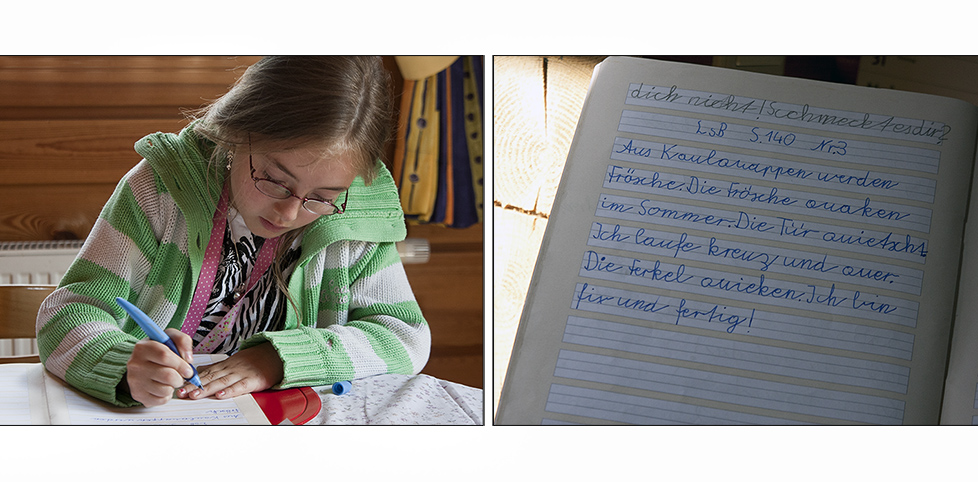 dich nicht! Scchmeckt es dir?
LsB S. 140 Nr.3
Aus Kaulquappen werden
Frösche. Die Frösche quaken
im Sommer. Die Tür quietscht.
Ich laufe kreuz und quer.
Die Ferkel quieken. Ich bin
fix und fertig!